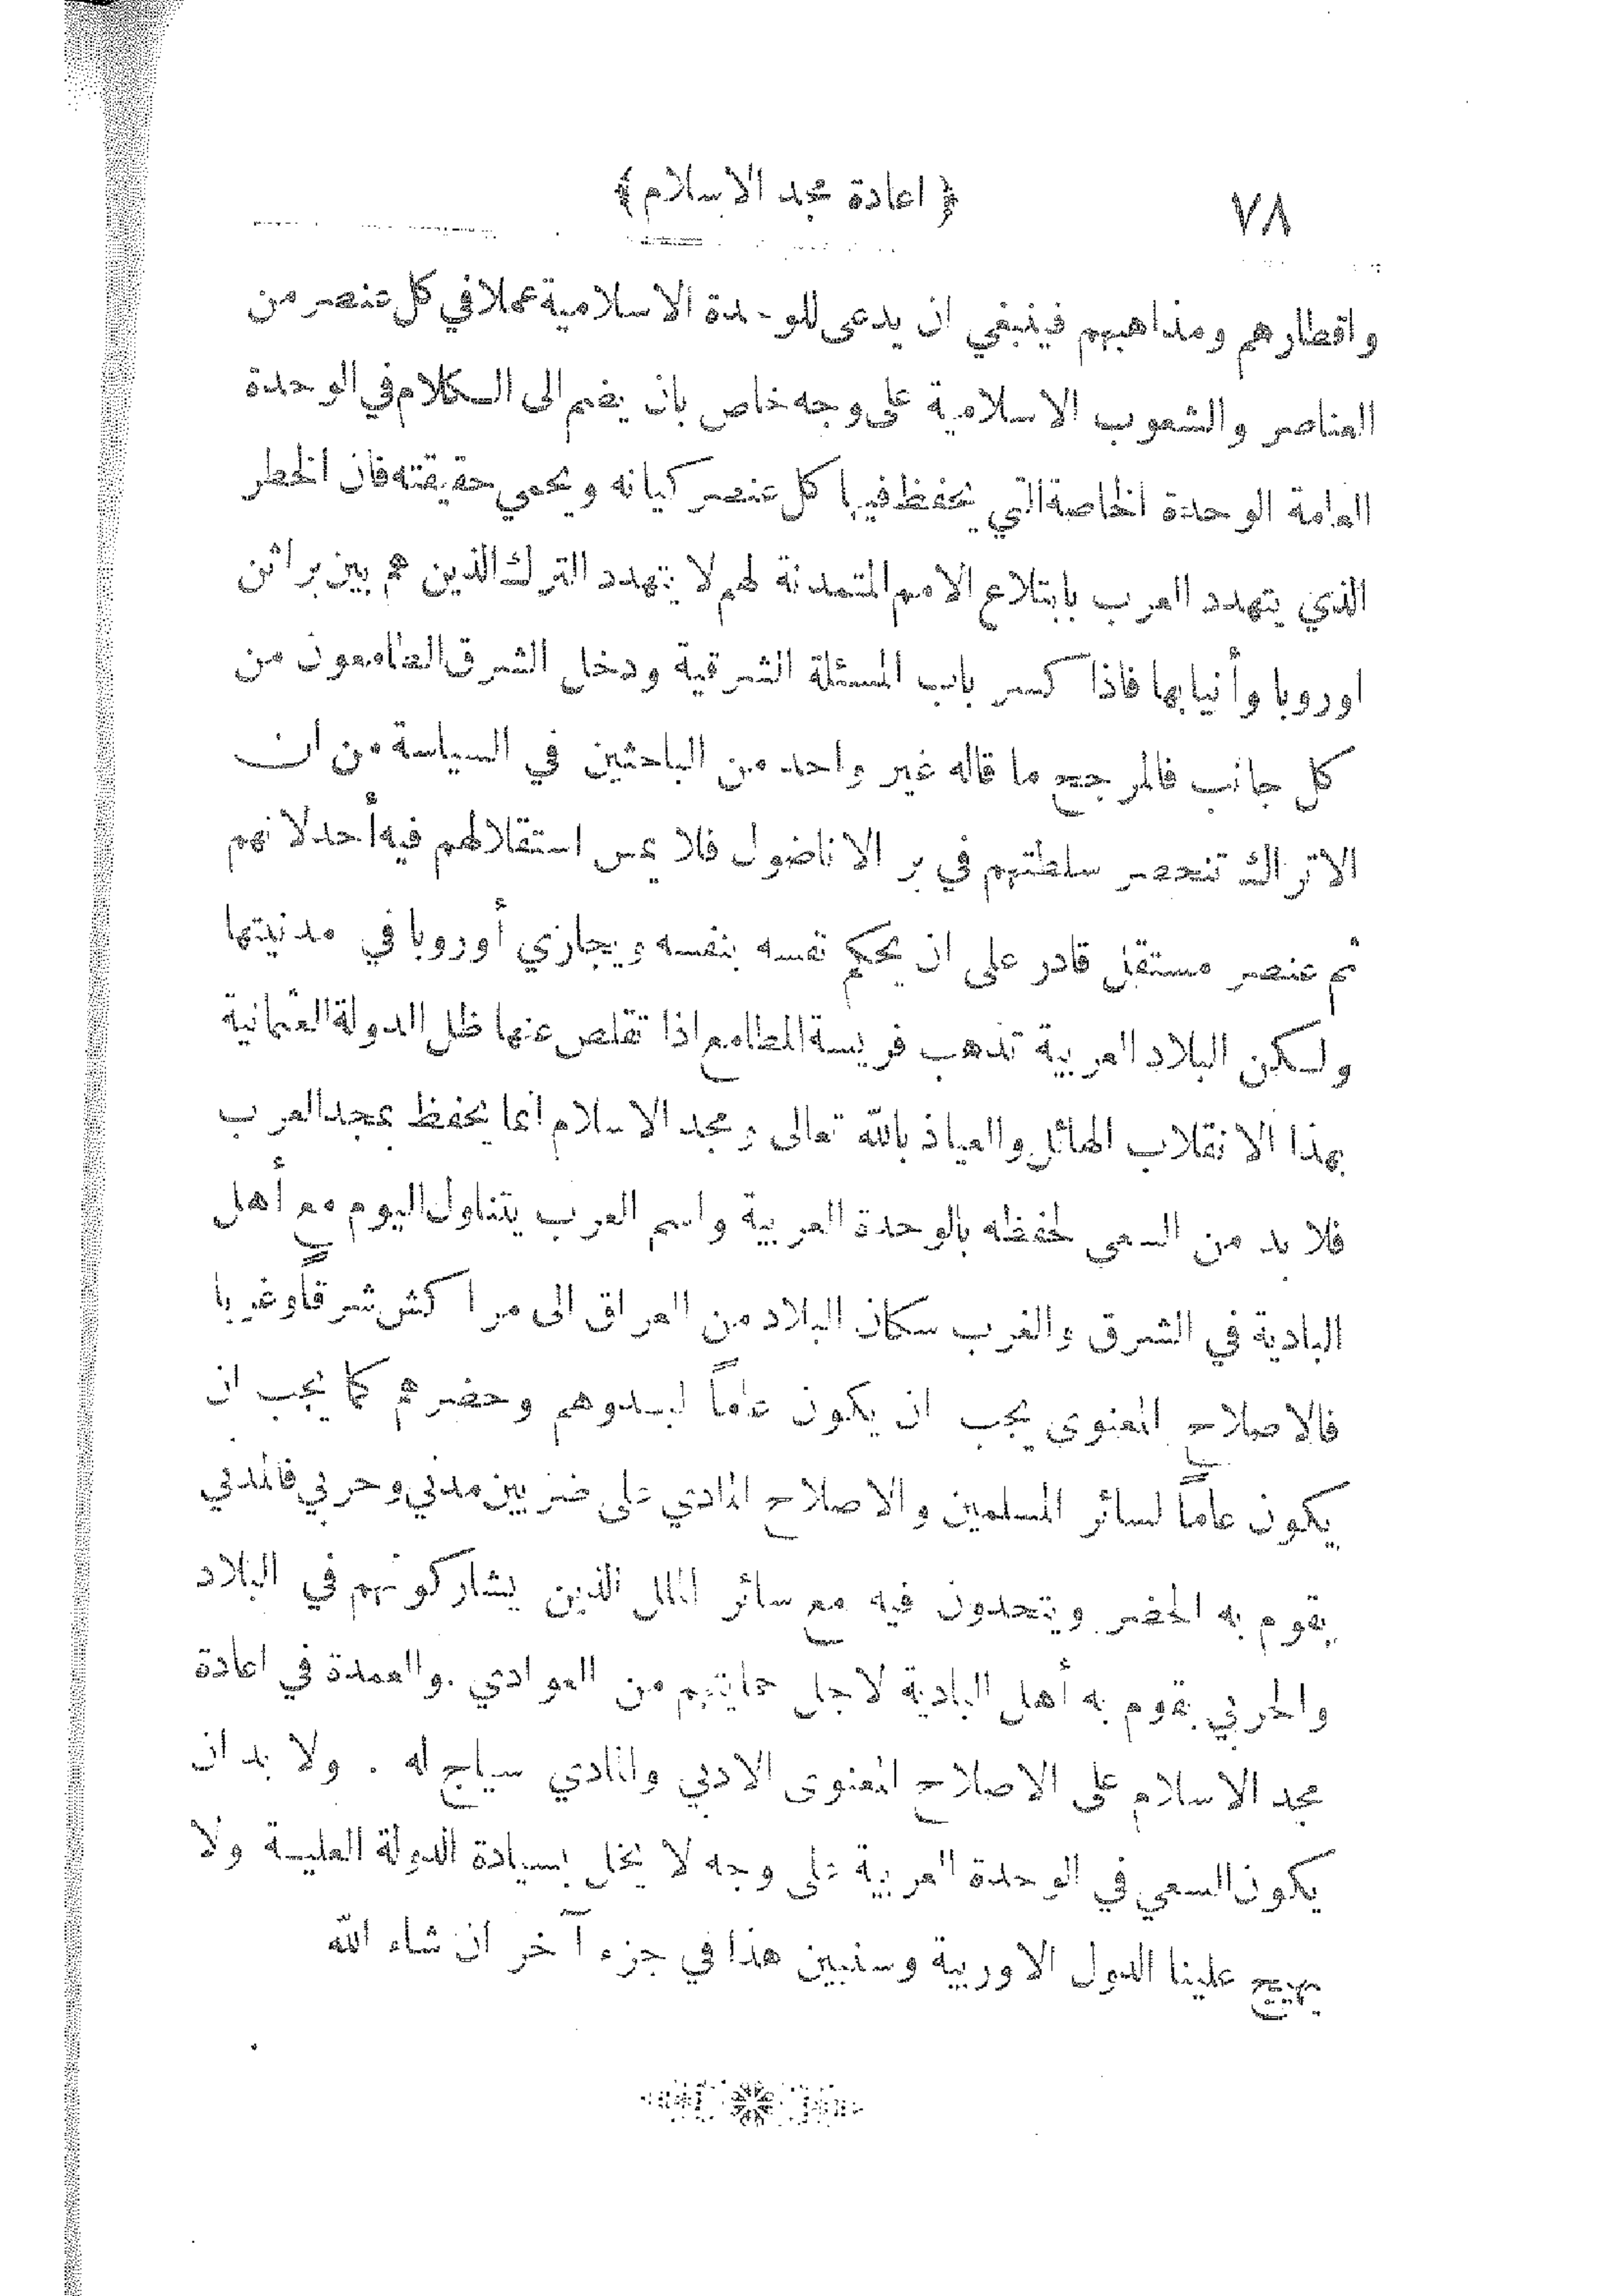 ٧٨
﴿ اعادة مجد الاسلام ﴾
واقطارهم ومذاهبهم فينبغي ان يدعى للوحدة الاسلامية عملا في كل عنصر من
العناصر والشعوب الاسلامية على وجه خاص بان يضم الى الكلام في الوحدة
العامة الوحدة الخاصة التي يحفظ فيها كل عنصر كيانه ويحمي حقيقته فان الخطر
الذي يتهدد العرب بابتلاع الامم المتمدنة لهم لا يتهدد الترك الذين هم بين براثن
اوروبا وأنيابها فاذا كسر باب المسئلة الشرقية ودخل الشرق الطامعون من
كل جانب فالمرجح ما قاله غير واحد من الباحثين في السياسة من ان
الاتراك تنحصر سلطتهم في بر الاناضول فلا يمس استقلالهم فيه أحد لانهم
ثم عنصر مستقل قادر على ان يحكم نفسه بنفسه ويجاري أوروبا في مدنيتها
ولكن البلاد العربية تذهب فريسة المطامع اذا تقلص عنها ظل الدولة العثمانية
بهذا الانقلاب الهائل والعياذ بالله تعالى ومجد الاسلام انما يحفظ بمجد العرب
فلا بد من السعي لحفظه بالوحدة العربية واسم العرب يتناول اليوم مع أهل
البادية في الشرق والغرب سكان البلاد من العراق الى مراكش شرقاً وغربا
فالاصلاح المعنوى يجب ان يكون عاماً لبدوهم وحضرهم كما يجب ان
يكون عاماً لسائر المسلمين والاصلاح المادي على ضربين مدني وحربي فالمدني
يقوم به الحضر ويتحدون فيه مع سائر الملل الذين يشاركونهم في البلاد
والحربي يقوم به أهل البادية لاجل حمايتهم من العوادي . والعمدة في اعادة
مجد الاسلام على الاصلاح المعنوى الادبي والمادي سياج له . ولا بد ان
يكون السعي في الوحدة العربية على وجه لا يخل بسيادة الدولة العلية ولا
يهيج علينا الدول الاوربية وسنبين هذا في جزء آخر ان شاء الله